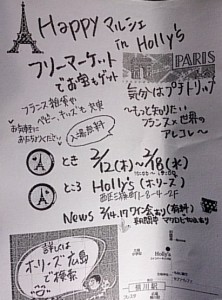 Happy マルシェ
in Holly's
フリーマーケット
でお宝もゲット
PARIS
フランス雑貨や
ベビー、キッズも充実
お気軽に
お立ちよりください
入場無料
気分はプチトリップ
〜もっと知りたい
フランス×世界の
アレコレ〜
とき 2/12(木)〜2/18(水)
ところ Holly's (ホリーズ)
News 2/14. ワイン会あり(有料)
詳しくは
ホリーズ広島
で検索
Holly's
横川駅